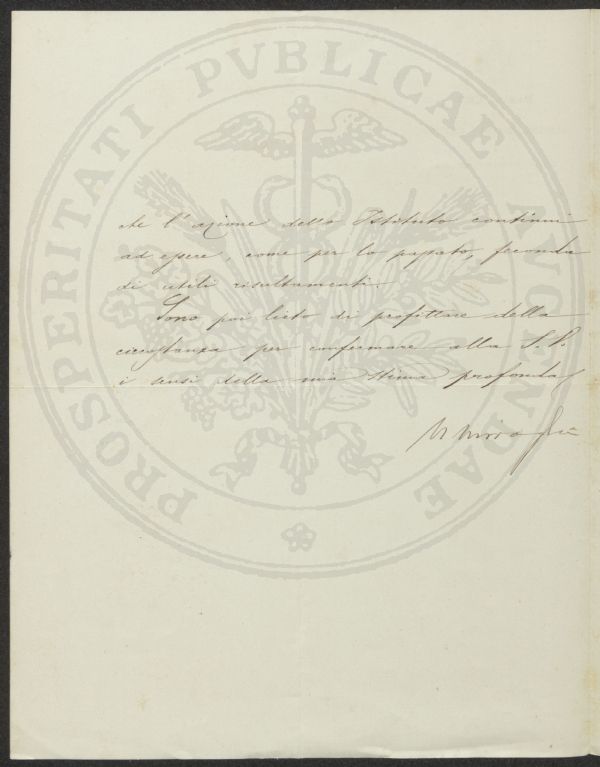 PROSPERITATI PVBLICAE AVGENDAE
che l'azione dello Istituto continui
ad essere, come per lo passato, feconda
di utili risultamenti.
Sono poi lieto di profittare della
circostanza per confermare alla S. V.
i sensi della mia stima profonda